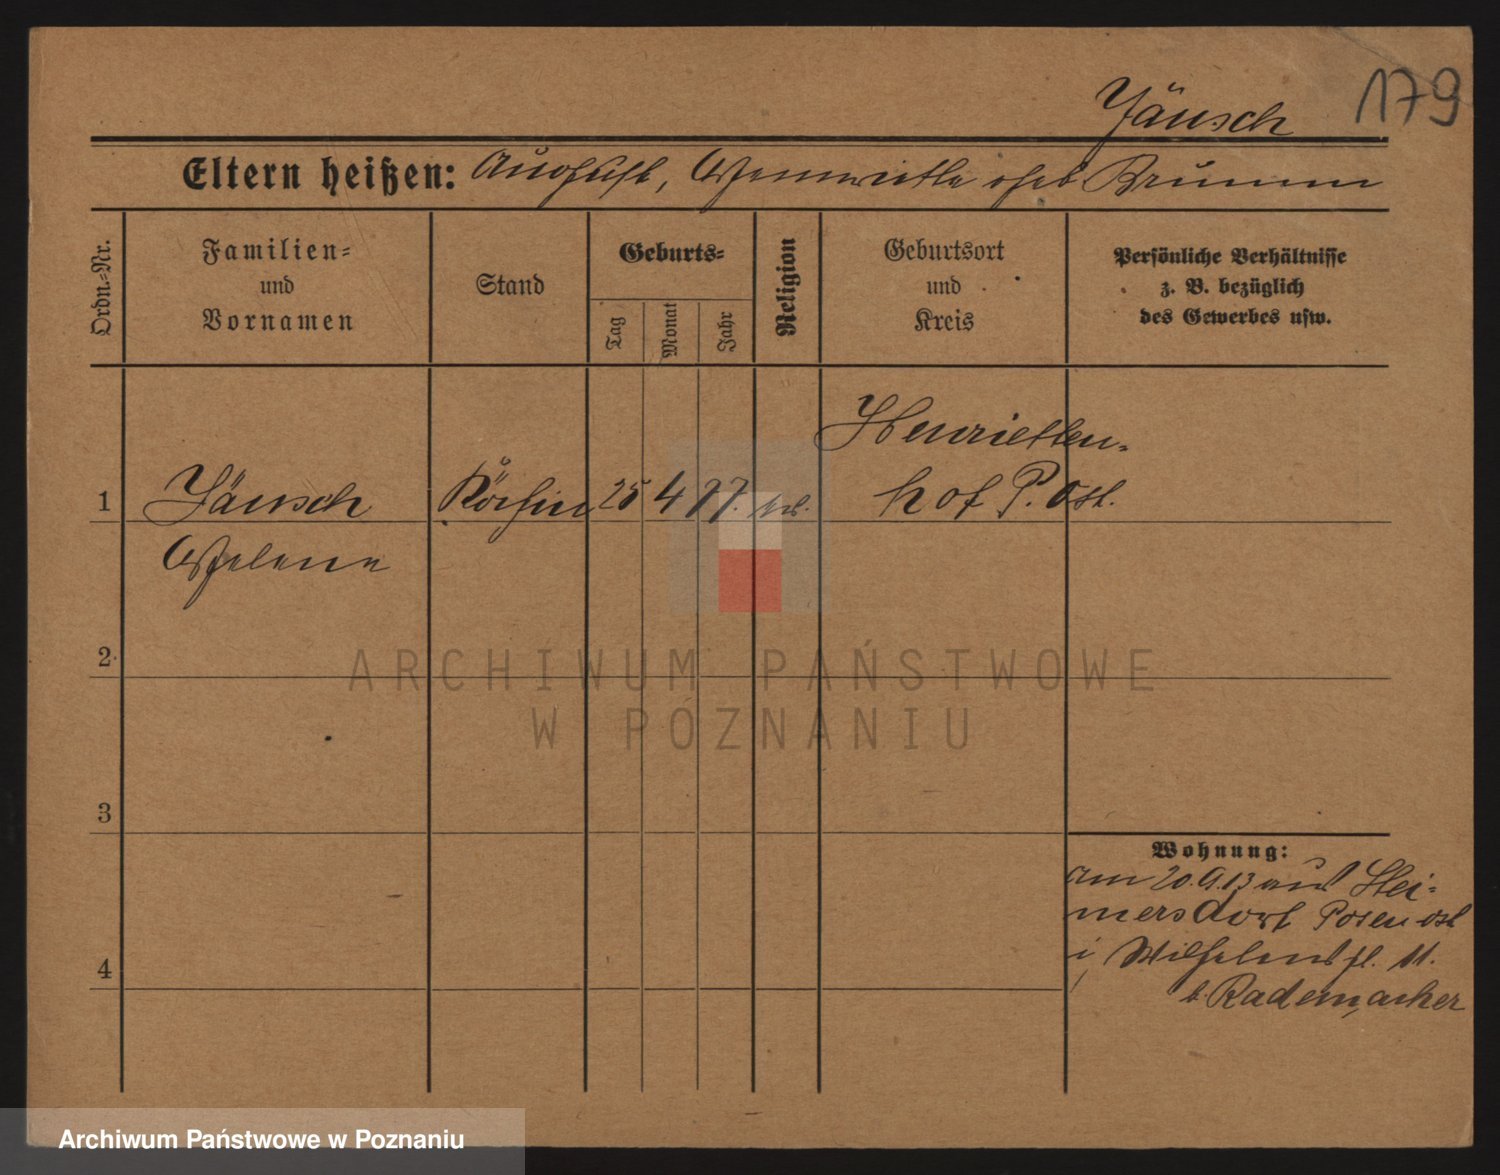 179
Jänsch
Eltern heißen: August, Henriette geb Brumm
Ordn.=Nr.
Familien=
und
Vornamen
Stand
Geburts=
Tag
Monat
Jahr
Religion
Geburtsort
und
Kreis
Persönliche Verhältnisse
z. B. bezüglich
des Gewerbes usw.
1 Jänsch Köchin 25 4 77.
Henrietten=
hof P. Ost.
Helene
2
3
4
Wohnung:
am 20.9.13 aus
mersdorf Posen ost
i Wilhelmspl. 11.
b. Rademacher
ARCHIWUM PAŃSTWOWE
W POZNANIU
Archiwum Państwowe w Poznaniu